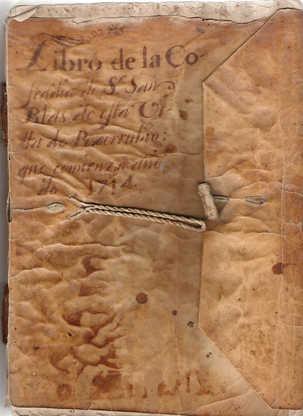 Libro de la Co-
fradia de Sr. San
Blas de esta Vi-
lla de Becerrubio:
que comienza año
de 1714.